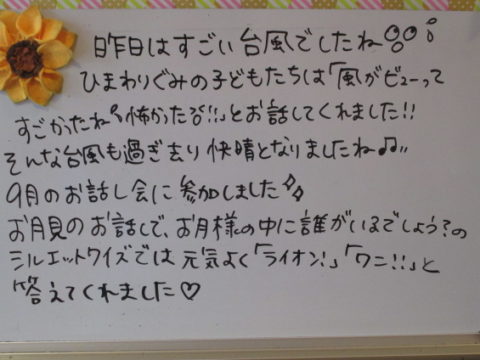 昨日はすごい台風でしたね
ひまわりぐみの子どもたちは「風がビューって
すごかったね」「怖かったぁ!!」とお話してくれました!!
そんな台風も過ぎ去り快晴となりましたね♫♪
9月のお話し会に参加しました
お月見のお話しで、お月様の中に誰がいるでしょう?の
シルエットクイズでは元気よく「ライオン!」「ワニ!!」と
答えてくれました♡